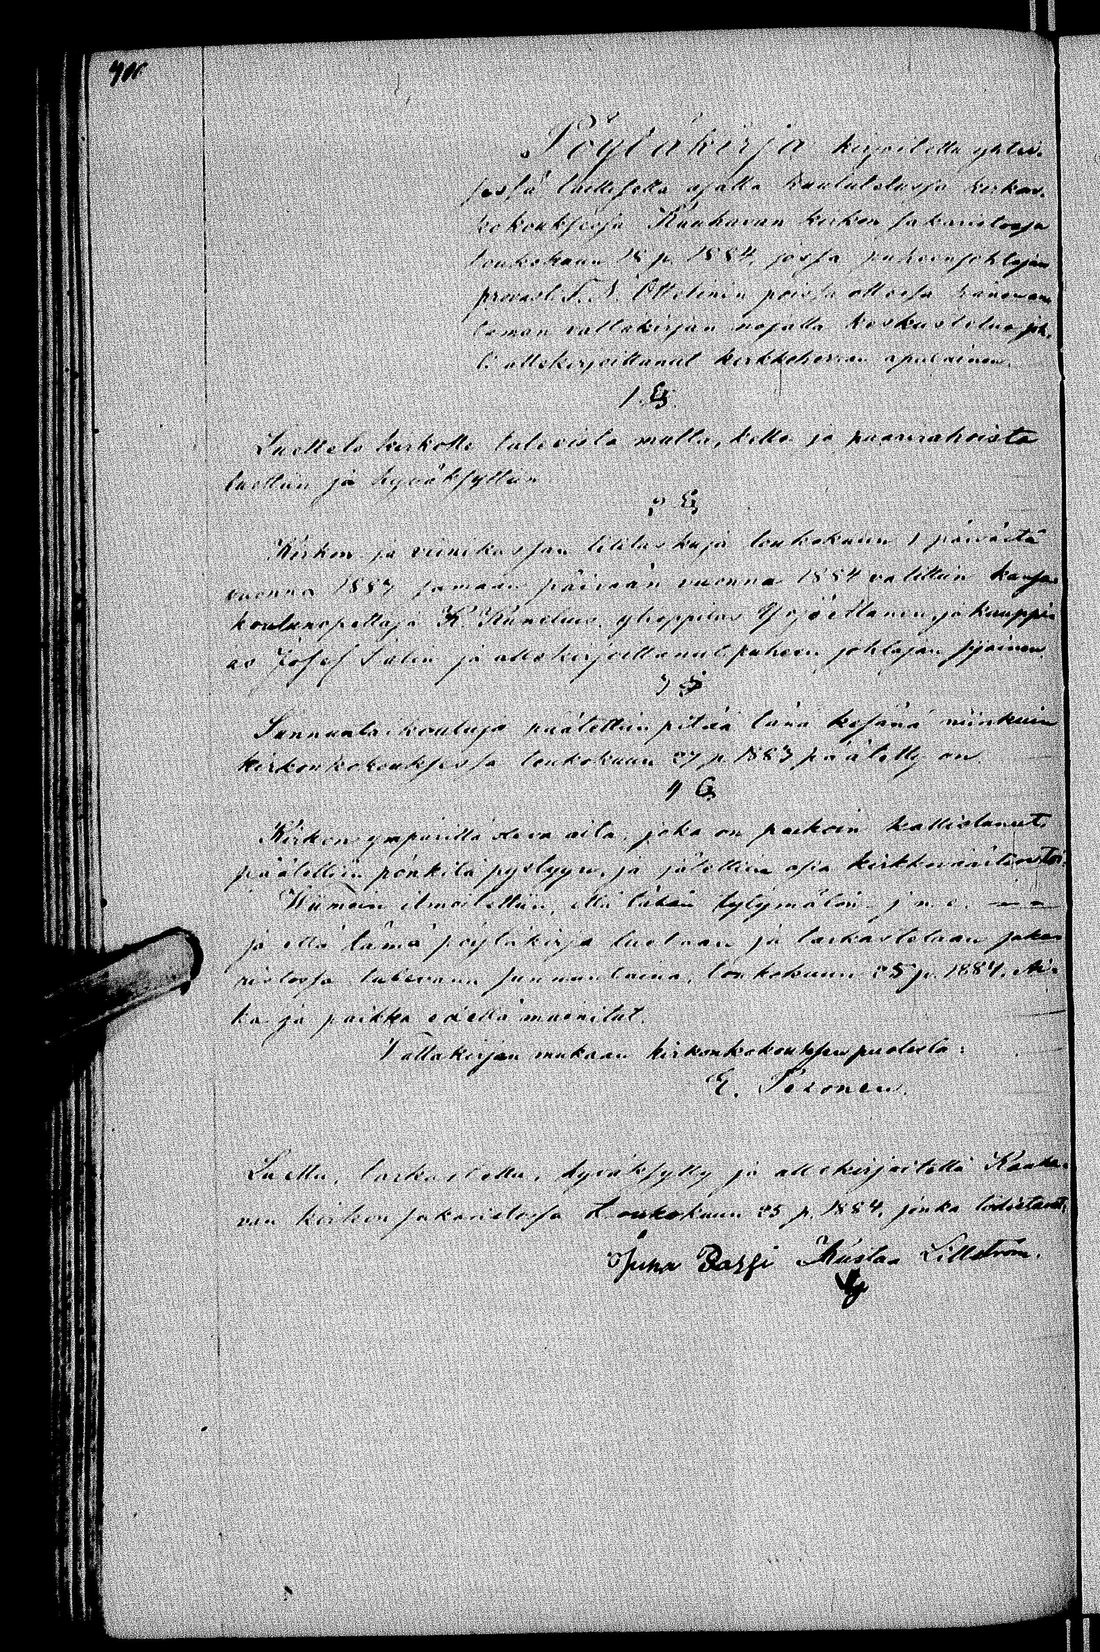 Pöytäkirja kirjoitettu yhtei-
sessä laillisella ajalla kuulutetussa kirkon-
kokouksessa Kauhavan kirkon sakaristossa
toukokuun 18 p. 1884, jossa puheenjohtajan
provasti Ottelinin poissa ollessa hänen an-
taman valtakirjan nojalla keskustelua joh-
ti allekirjoittanut kirkkoherran apulainen.
1 §.
Luettelo kirkolle tulevista multa, kello ja paarirahoista
luettiin ja hyväksyttiin.
2 §
Kirkon ja viinikassan tililaskuja toukokuun 1 päivästä
vuonna 1883 samaan päivään vuonna 1884 valittiin kansa-
koulunopettaja K. ylioppilas ja kauppi-
as Josef Salin ja allekirjoittanut puheen johtajan sijainen.
3 §
Sunnuntaikouluja päätettiin pitää tänä kesänä niinkuin
kirkonkokouksessa toukokuun 27 p. 1883 päätetty on.
4 §
Kirkon ympärillä oleva aita, joka on paikoin kallistunut,
päätettiin pönkitä pystyyn, ja jätettiin asia kirkkoväärtien
Wiimein ilmoitettiin, että tähän tytymätön j. n. e. — —
ja että tämä pöytäkirja luetaan ja tarkastetaan saka-
ristossa tulevana sunnuntaina, toukokuun 25 p. 1884. Ai-
ka ja paikka edellä mainitut.
Valtakirjan mukaan kirkonkokouksen puolesta:
E. Pesonen.
Luettu, tarkastettu, hyväksytty ja allekirjoitettu Kauha-
van kirkon sakaristossa Toukokuun 25 p. 1884, jonka todistavat,
Juha Passi Kustaa Lillström.